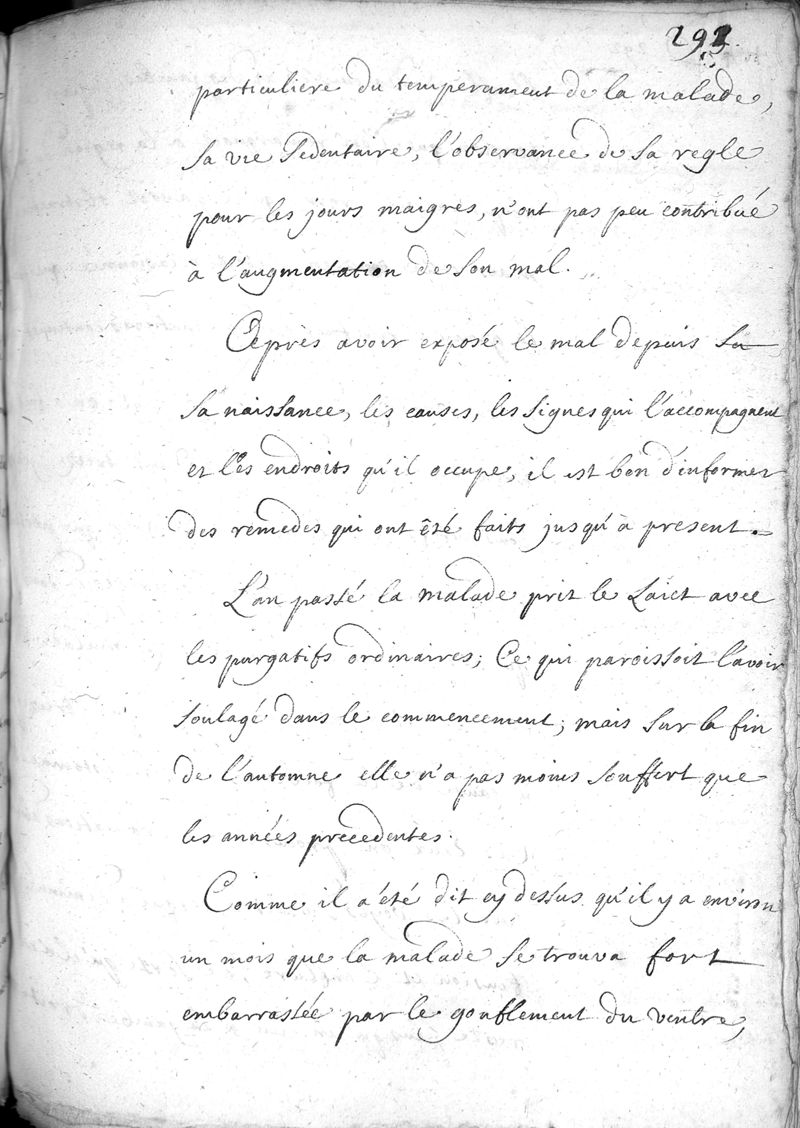 293.
particuliere du temperament de la malade,
sa vie sedentaire, l'observance de sa regle
pour les jours maigres, n'ont pas peu contribué
à l'augmentation de son mal.
Aprés avoir exposé le mal depuis sa
sa naissance, les causes, les signes qui l'accompagnent
et les endroits qu'il occupe, il est bon d'informer
des remedes qui ont êté faits jusqu'à present.
L'an passé la malade prit le Laict avec
les purgatifs ordinaires; Ce qui paroissoit l'avoir
soulagé dans le commencement; mais sur la fin
de l'automne elle n'a pas moins souffert que
les années precedentes.
Comme il a été dit cy dessus qu'il y a environ
un mois que la malade se trouva fort
embarrassée par le gonflement du ventre,